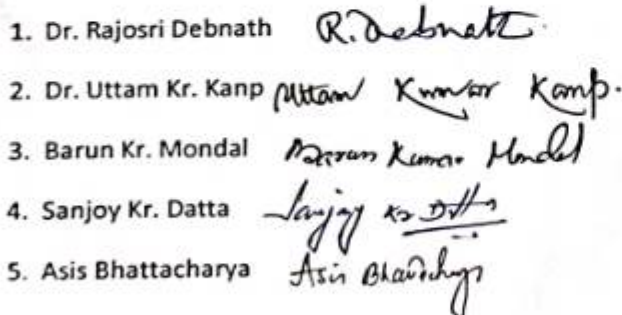 1. Dr. Rajosri Debnath R. Debnath.
2. Dr. Uttam Kr. Kanp Uttam Kumar Kamp.
3. Barun Kr. Mondal Barun Kumar Mondal
4. Sanjoy Kr. Datta Sanjoy Kr Datta
5. Asis Bhattacharya Asis Bhattacharya